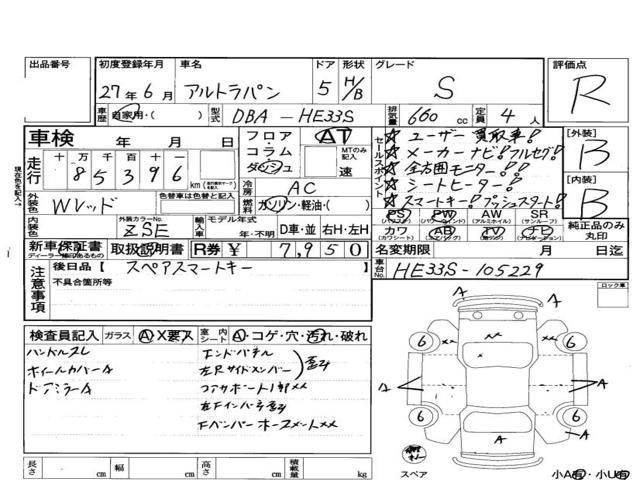 出品番号
初度登録年月
27年6月
車名
アルトラパン
ドア
5
形状
H/B
グレード
S
評価点
R
車歴
自家用・( )
型式
DBA-HE33S
排気量
660cc
定員
4人
車検
年 月 日
フロア・コラム・ダッシュ
AT
MTのみ記入
速
セールスポイント
☆ユーザー買取車!
☆メーカーナビ!フルセグ!
☆全方囲モニター!!
☆シートヒーター!
☆スマートキー!プッシュスタート!
[外装]
B
[内装]
B
走行
十万千百十一
85396
km
冷房
AC
現在色を記入→
外装色
Wレッド
色替車は色替と記入
燃料
ガソリン・軽油・( )
PS PW AW SR
(パワステ) (パワーウインド) (アルミホイル) (サンルーフ)
カワ AB TV ナビ
(カワシート) (エアバッグ) (ナビゲーション)
純正品のみ丸印
内装色
外装カラーNo.
ZSE
輸入車
モデル年式
年・不明
D車・並
右H・左H
新車保証書
ディーラー印があるもの
取扱説明書
R券
¥
7,950
名変期限
月 日迄
車台No.
HE33S-105229
注意事項
後日品【 スペアスマートキー
不具合箇所等
ロック車
検査員記入
ガラス
A・X要ス
室内シート
A・コゲ・穴・汚れ・破れ
ハンドルスレ
ホイールカバーA
ドアミラーA
エンドパネル
左Rサイドメンバー
歪み
コアサポート1部××
左Fインパネ歪み
Fバンパーホースメント××
A
A
A
A
A
A
6
6
6
6
スペア
小A有・小U有
長さ
cm
幅
cm
高さ
cm
積載量
kg